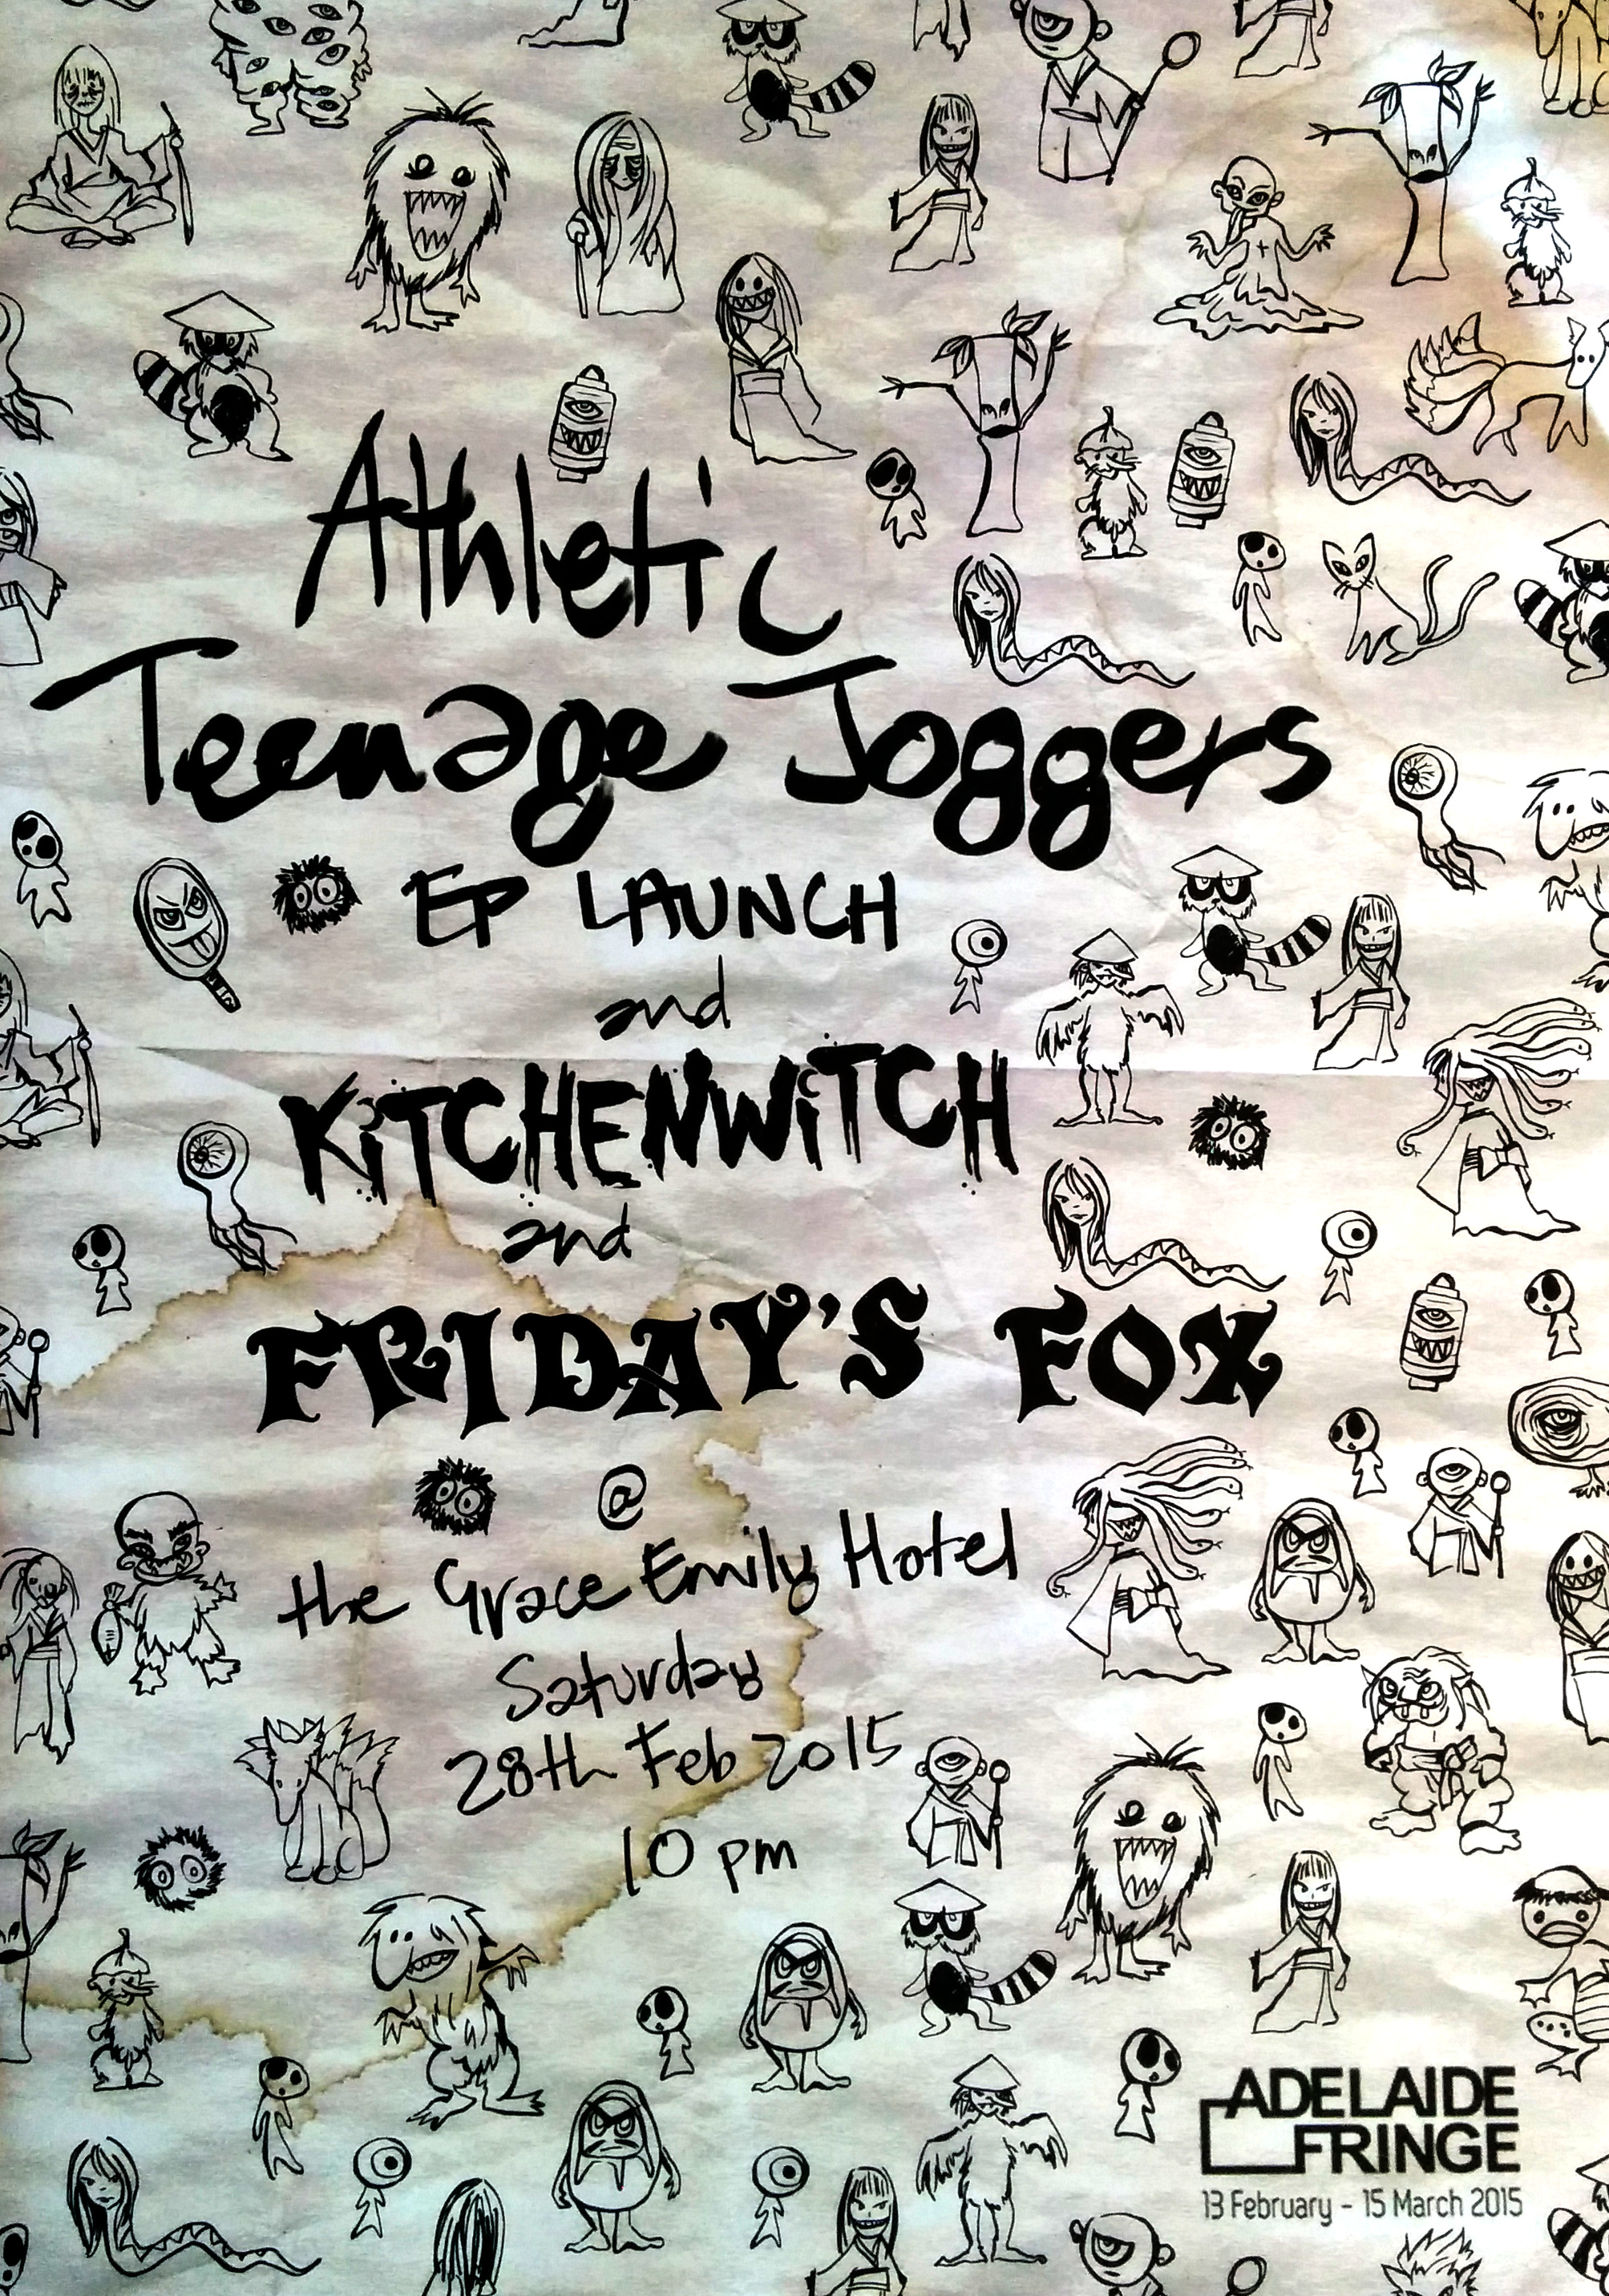 Athletic
Teenage Joggers
EP LAUNCH
and
KiTCHENWiTCH
and
FRIDAY'S FOX
@
the Grace Emily Hotel
Saturday
28th Feb 2015
10 pm
ADELAIDE
FRINGE
13 February - 15 March 2015